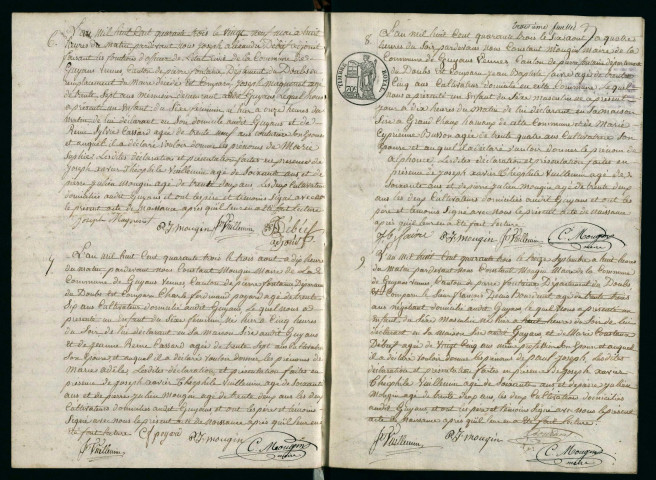 L'an mil huit cent quarante trois le vingt neuf Juin à huit
heures du Matin pardevant nous Joseph alexandre Debief adjoint
faisant les fonctions d'officier de l'état civil de la Commune de
Guyans Vennes Canton de pierre fontaine Département du Doubs
Comparu Joseph Maignerot agé
de trente Sept ans domicilié audit Guyans lequel nous
a présenté un Enfant du Sexe féminin né hier à onze heures du
Matin de lui déclarant en Son domicile audit Guyans et de
Rene Silvie Cassard agée de trente neuf ans couturière Son Epouse
et auquel il a déclaré vouloir donner les prénoms de Marie
Sophie Lesdites déclaration et présentation faites en présence de
Joseph xavier Théophile Vuillemin agé de Soixante ans et de
pierre julien Mougin agé de trente deux ans les deux Cultivateurs
domiciliés audit Guyans et ont les père et témoins Signé avec nous
le présent acte de Naissance après qu'il leur en a été fait lecture
Joseph Maignerot P. J. mougin Jph Vuillemin Débief
adjoint
7
L'an mil huit cent quarante trois le trois aout à dix heures
du matin pardevant nous Constant Mougin Maire de La
Commune de Guyans Vennes Canton de pierre fontaine Département
du Doubs Est Comparu Charle ferdinand payard agé de trente
Sept ans Cultivateur domicilié audit Guyans Lequel nous a
présenté un Enfant du Sexe féminin né hier à Cinq heures
du Soir de lui déclarant en Sa Maison Sise audit Guyans
et de jeanne Rene Cassard agée de trente Sept ans
Son Epouse et auquel il a déclaré vouloir donner les prénoms de
Marie adèle Lesdites déclaration et présentation faites en
présence de joseph xavier Théophile Vuillemin agé de Soixante
ans et de pierre julien Mougin agé de trente deux ans les deux
Cultivateurs domiciliés audit Guyans et ont les père et témoins
Signé avec nous le présent acte de Naissance après qu'il leur en
a été fait lecture P. J. mougin
Jph Vuillemin C. Mougin
maire
troisième feuillet
8
TIMBRE ROYAL
L'an mil huit cent quarante trois le Six aout à quatre
heures du Soir pardevant nous Constant Mougin Maire de la
Commune de Guyans Vennes Canton de pierre fontaine département
du Doubs Est Comparu Jean Baptiste faivre agé de trente
Cinq ans Cultivateur domicilié en cette Commune Lequel
nous a présenté un Enfant du Sexe masculin né
à dix heures du Matin de lui déclarant en Sa maison
Sise à Grand Champ hameau de cette Commune et de Marie
Cyprienne Busson agée de trente quatre ans Cultivatrice Son
Epouse et auquel il a déclaré vouloir donner le prénom de
alphonse Lesdites déclaration et présentation faites en
présence de joseph xavier Théophile Vuillemin agé de
Soixante ans et de pierre julien Mougin agé de trente deux
ans les deux Cultivateurs domiciliés audit Guyans et ont les
père et témoins Signé avec nous le présent acte de Naissance
après qu'il leur en a été fait lecture
J. B. faivre P. J. mougin Jph Vuillemin C. Mougin
maire
9
L'an mil huit cent quarante trois le Septembre à huit heures
du Matin pardevant nous Constant Mougin Maire de la Commune
de Guyans Vennes, Canton de pierre fontaine Département du Doubs
Est Comparu agé de trente
ans domicilié audit Guyans lequel nous a présenté un
Enfant du Sexe Masculin né hier à huit heures du Soir de lui
déclarant en Sa Maison Sise audit Guyans et de Marie
Debief agée de Vingt Cinq ans Son Epouse et auquel
il a déclaré vouloir donner les prénoms de paul joseph, Lesdites
déclaration et présentation faites en présence de joseph xavier
Théophile Vuillemin agé de Soixante ans et de pierre julien
Mougin agé de trente deux ans les deux Cultivateurs domiciliés
audit Guyans et ont les père et témoins Signé avec nous le présent
acte de Naissance après qu'il leur en a été fait lecture
Jph Vuillemin P. J. mougin
C. Mougin
maire